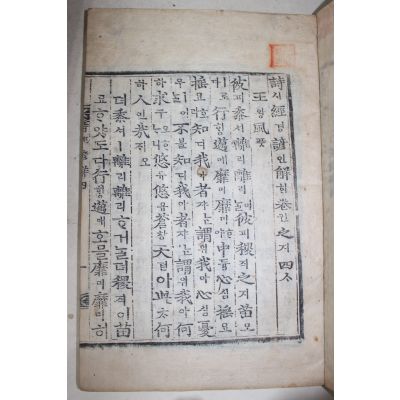 詩시經경諺언解ᄒᆡ卷권之지四ᄉ
王왕風풍
彼피黍셔離리離리彼피稷직之지苗묘
로다行ᄒᆡᆼ邁매靡미靡미ᄒᆞ야中듕心심搖요
搖요호라知디我아者쟈ᄂᆞᆫ謂위我아心심憂
우不블知디我아者쟈ᄂᆞᆫ謂위我아何
하求구悠유悠유蒼창天텬아此ᄎᆞ何
하人인哉ᄌᆡ오
뎌黍셔ㅣ離리離리ᄒᆞ거ᄂᆞᆯ뎌稷직이苗
묘ᄒᆞ얏도다行ᄒᆡᆼ邁매호믈靡미靡미히